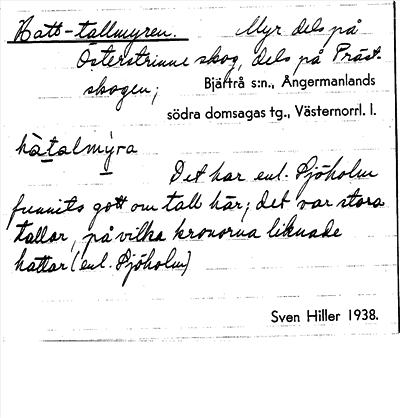 Hatt-tallmyren. Myr dels på
Österstrinne skog, dels på Präst-
skogen; Bjärtrå s:n., Ångermanlands
södra domsagas tg., Västernorrl. l.
hàtalmỳra
Det har enl. Sjöholm
funnits gott om tall här; det var stora
tallar, på vilka kronorna liknade
hattar (enl. Sjöholm)
Sven Hiller 1938.